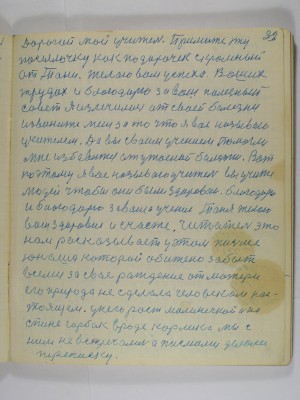 32
Дорогий мой учител. Примите эту
посилочку как подарочек скромный
от Тани. Желаю вам успеха. В ваших
трудах и благодарю за ваш полезный
совет Я излечилис от своей болезни
извините мен за то что я вас называю
учителем. Да вы своим учением помогли
мне избавитис от ужасной болезни. Вот
поэтому я вас называю учител вы учите
людей чтобы они были здоровы. благодарю
и благодарю за ваше учение Таня желаю
вам здоровия и счасте. Читател это
нам росказывает у этом писме
юноша которой обижено
всеми за свое рождение от матери
его природа не сделала человеком нас-
тоящем. у него рост малинчкой и на
спине горбок вроде карлика мы с
ним не встречалис а писмами делали
переписку.